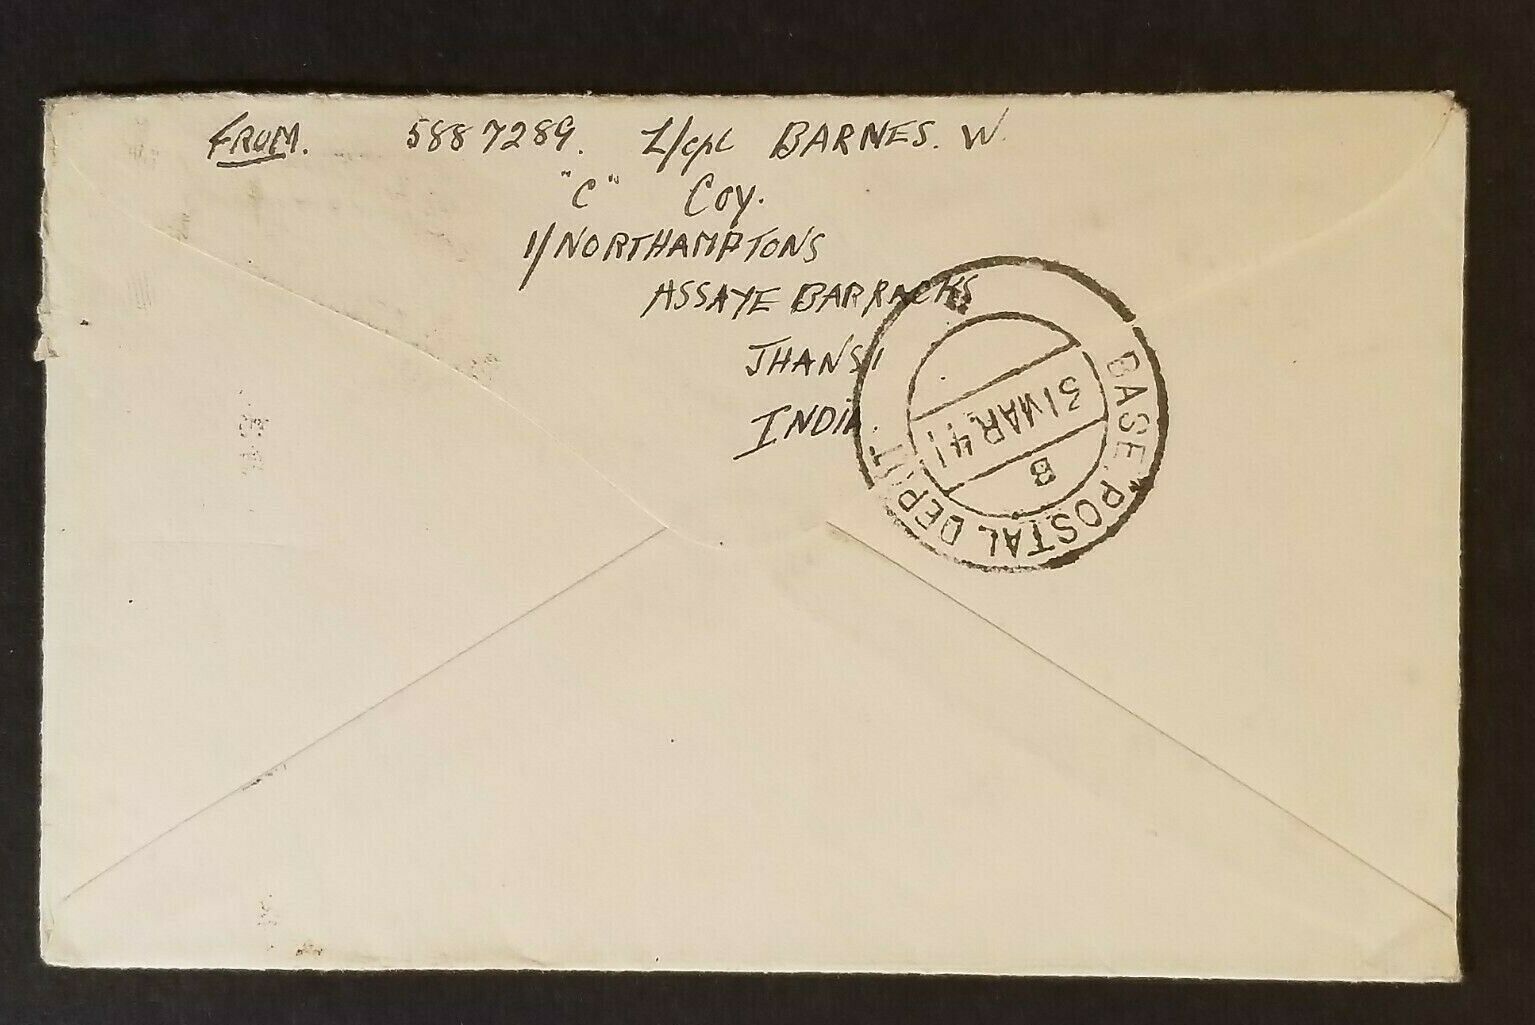 FROM. 5887289. L/cpl BARNES. W.
"C" Coy.
1/NORTHAMPTONS
ASSAYE BARRACKS
JHANSI
INDIA.
BASE POSTAL DEPOT
B
31 MAR 41